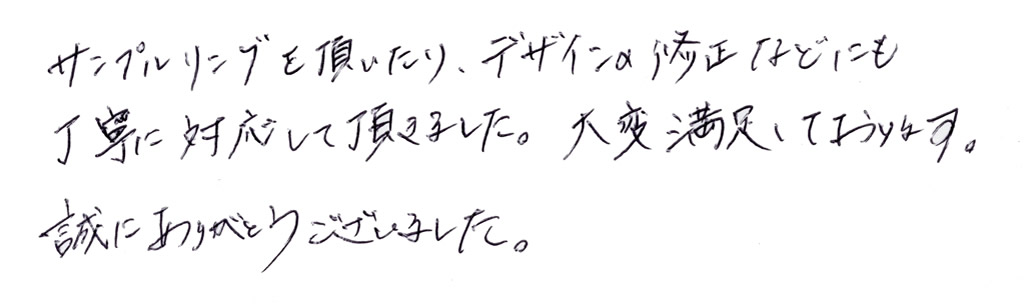 サンプルリングを頂いたり、デザインの修正などにも
丁寧に対応して頂きました。大変満足しております。
誠にありがとうございました。